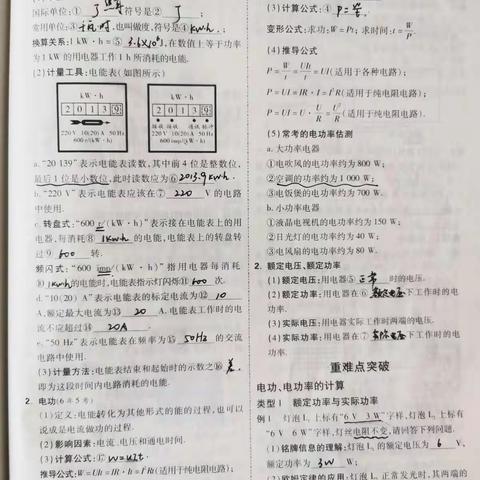 国际单位:① 了 符号是② 了 ;
常用单位:③ 千瓦时,也叫做度,符号是④ kw·h ;
换算关系:1 kW·h=⑤ 3.6×10⁶ J,在数值上等于功率
为 1 kW 的用电器工作 1 h 所消耗的电能.
(2)计量工具:电能表(如图所示)
kW·h
2 0 1 3 9
220 V 10(20) A 50 Hz
600 r/(kW·h)
kW·h
2 0 1 3 9
220 V 10(20) A 50 Hz
600 imp/(kW·h)
a."20 139"表示电能表读数,其中前 4 位是整数位,
最后 1 位是小数位,此时读数应为⑥ 2013.9 kw·h
b."220 V"表示电能表应该在⑦ 220 V 的电路
中使用.
c.转盘式:"600 r/(kW·h)"表示接在电能表上的用
电器,每消耗⑧ 1kw·h 的电能,电能表上的转盘转
过⑨ 600 转.
频闪式:"600 imp/(kW·h)"指用电器每消耗
⑩ 1kw·h 的电能时,电能表指示灯闪烁⑪ 600 次.
d."10(20) A"表示电能表的标定电流为⑫ 10
A,额定最大电流为⑬ 20 A.电能表工作时的电
流不应超过⑭ 20A .
e."50 Hz"表示电能表在频率为⑮ 50Hz 的交流
电路中使用.
(3)计量方法:电能表结束和起始时的示数之⑯ 差,
即为这段时间内电路消耗的电能.
2. 电功(6年5考)
(1)定义:电能转化为其他形式的能的过程,也可以
说成是电流做功的过程.
(2)影响因素:电流、电压和通电时间.
(3)计算公式:⑰ W=UIt .
推导公式:W=UIt=IR·It=I²Rt(适用于纯电阻电路);
(3)计算公式:④
变形公式:求功:W=Pt;求时间:t=W/P.
(4)推导公式
P=W/t=UIt/t=UI(适用于各种电路);
P=UI=IR·I=I²R(适用于纯电阻电路);
P=UI=U·U/R=U²/R(适用于纯电阻电路).
(5)常考的电功率估测
a.大功率电器
①电吹风的电功率约为 800 W;
②空调的功率约为 1 000 W;
③电饭煲的功率约为 700 W.
b.小功率电器
①液晶电视机的电功率约为 150 W;
②日光灯的电功率约为 40 W;
③电风扇的电功率约为 80 W.
2. 额定电压、额定功率
(1)额定电压:用电器⑤ 正常 时的电压.
(2)额定功率:用电器在⑥ 额定电压 下工作时的电
功率.
(3)实际电压:用电器实际工作时两端的电压.
(4)实际功率:用电器在⑦ 实际电压 下工作时的电
功率.
重难点突破
电功、电功率的计算
类型 1 额定功率与实际功率
例 1 灯泡 L₁ 上标有"6 V 3 W"字样,灯泡 L₂ 上标有
"6 V 6 W"字样,灯丝电阻不变,请问答下列问题.
(1)铭牌信息的理解:灯泡 L₁ 的额定电压为 6 V,
额定功率为 3W W;
(2)欧姆定律的应用:灯泡 L₁ 正常发光时,其两端的